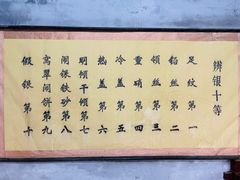 辨银十等
足纹第一
铅丝第二
锡丝第三
重硝第四
冷盖第五
热盖第六
明倾干倾第七
闹银铁砂第八
窝翠闹饼第九
假银第十